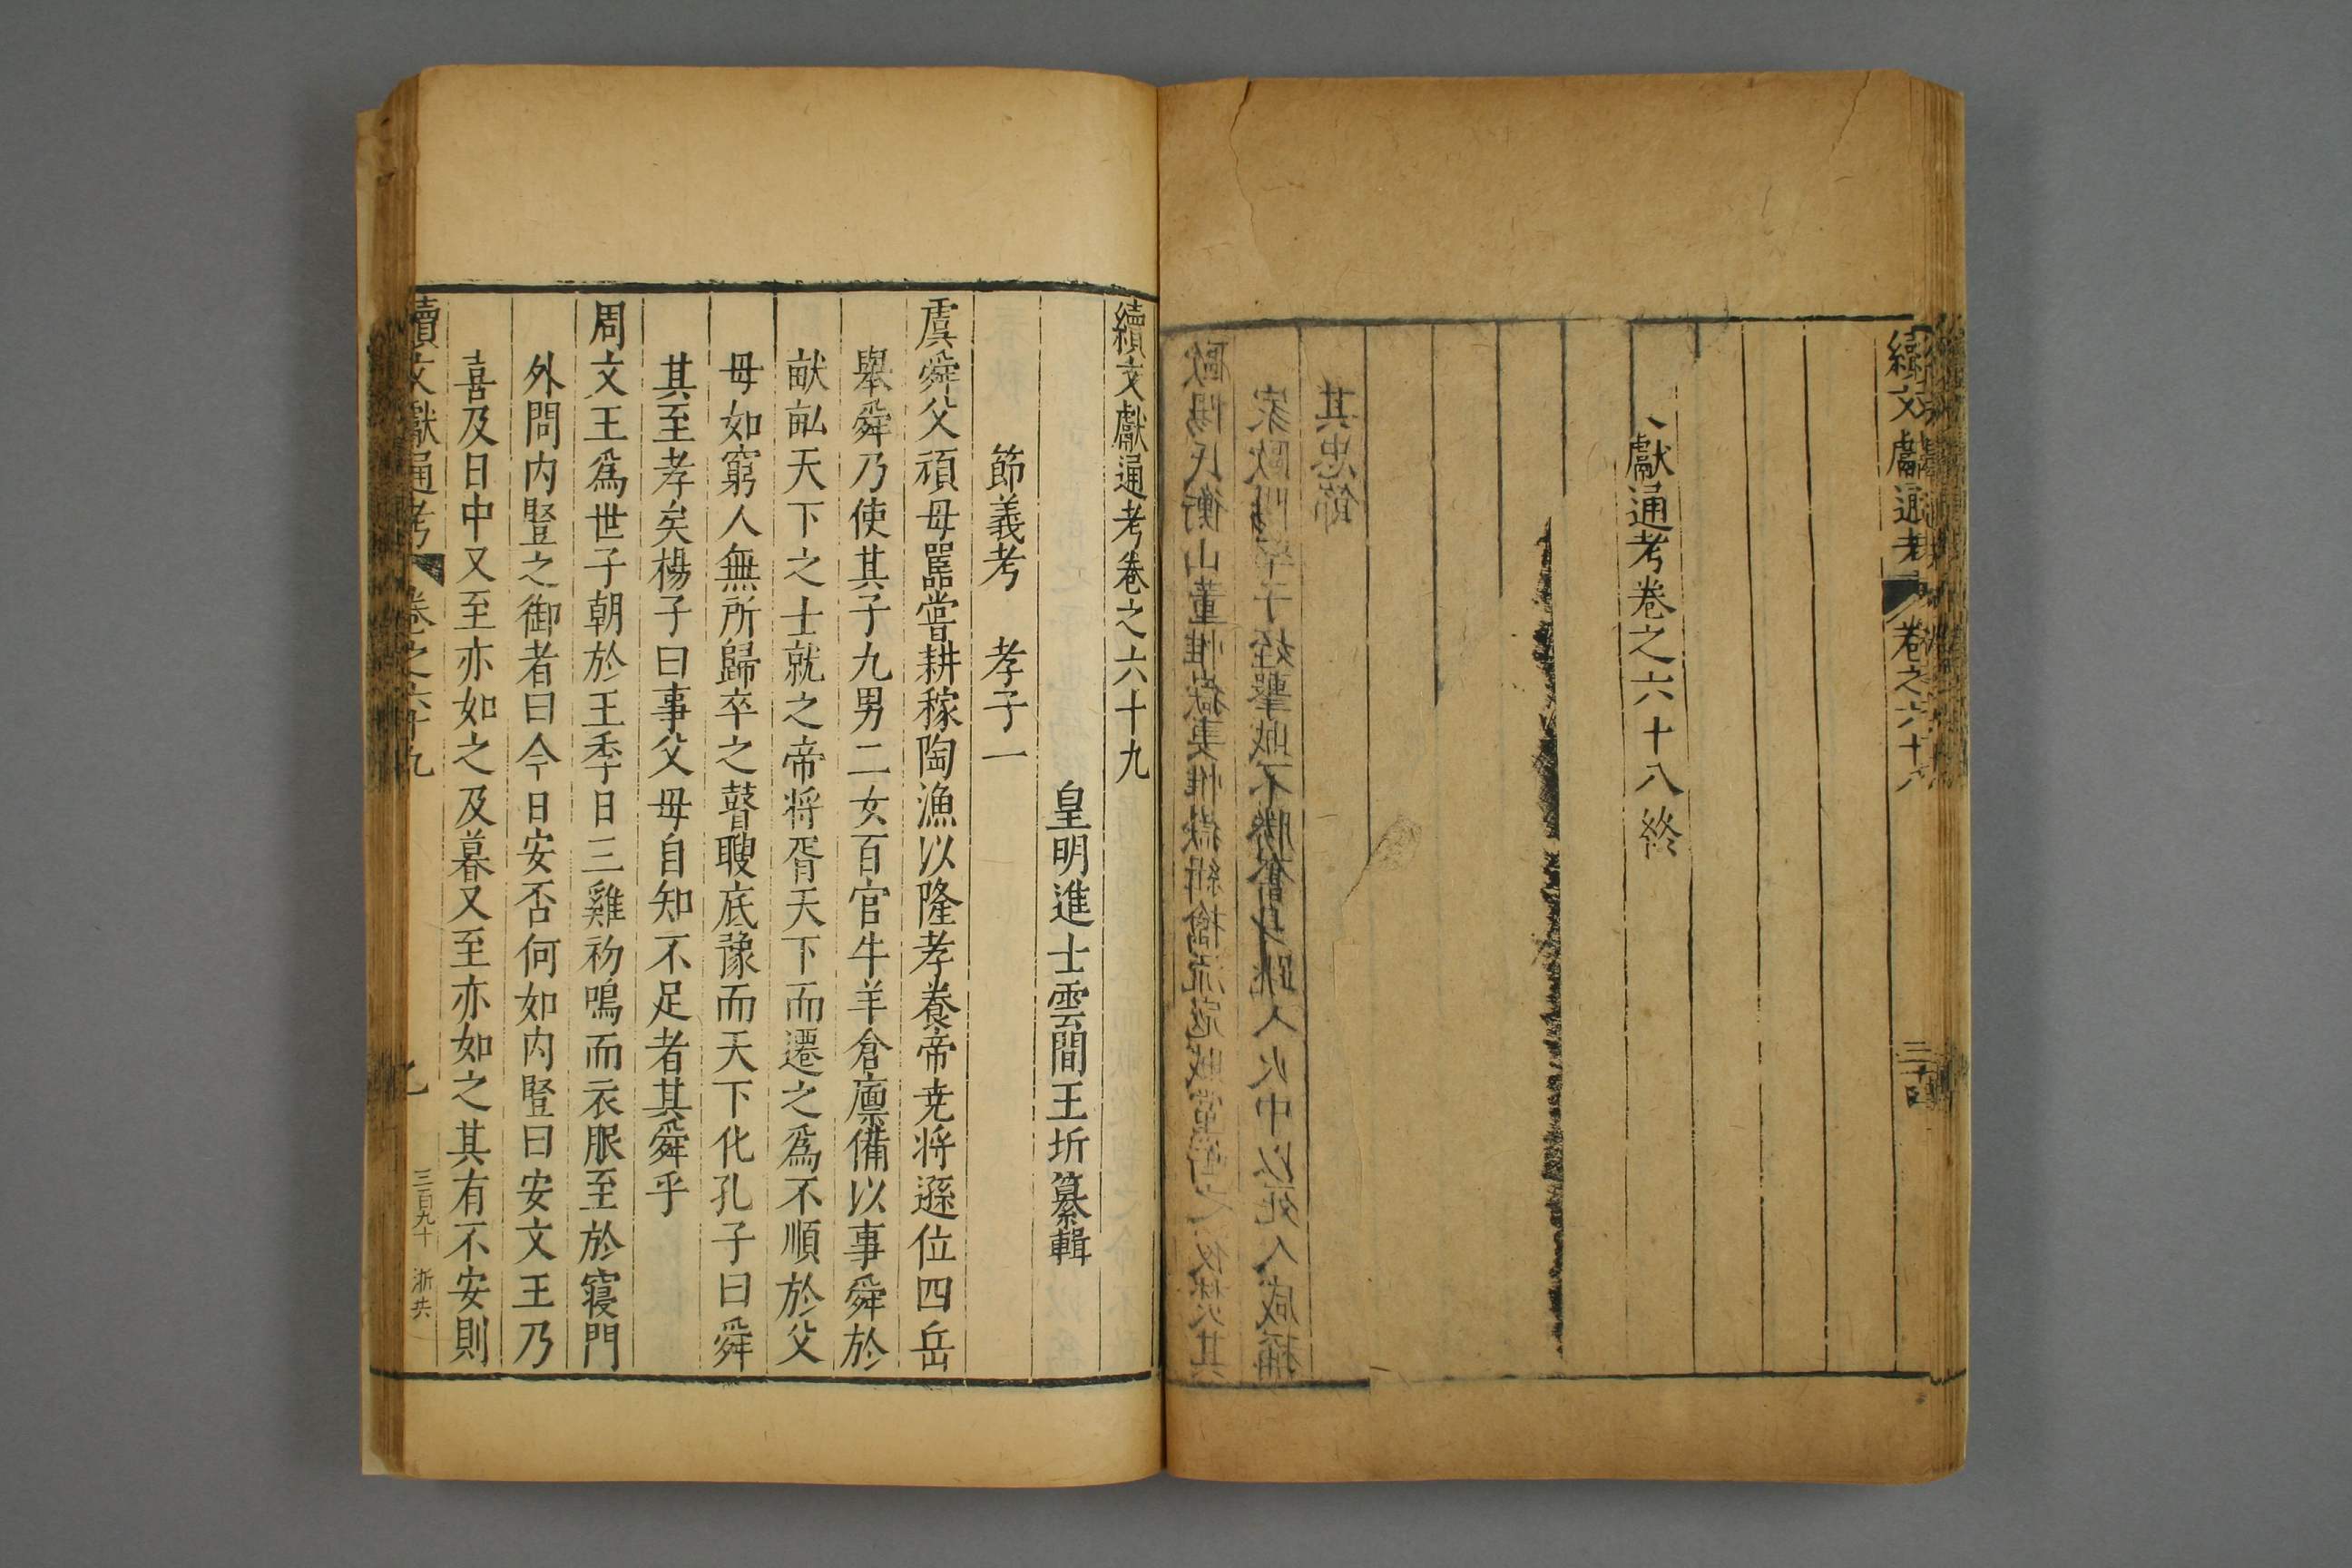 續文獻通考 卷之六十八 三十四
獻通考卷之六十八終
續文獻通考卷之六十九
皇明進士雲間王圻纂輯
節義考 孝子一
虞舜父頑母嚚嘗耕稼陶漁以隆孝養帝尭将遜位四岳
舉舜乃使其子九男二女百官牛羊倉廪備以事舜於
畎畆天下之士就之帝将胥天下而遷之爲不順於父
母如窮人無所歸卒之瞽瞍底豫而天下化孔子曰舜
其至孝矣楊子曰事父母自知不足者其舜乎
周文王爲世子朝於王季日三雞初鳴而衣服至於寝門
外問内豎之御者曰今日安否何如内豎曰安文王乃
喜及日中又至亦如之及暮又至亦如之其有不安則
續文獻通考 卷之六十九 三百九十 浙共